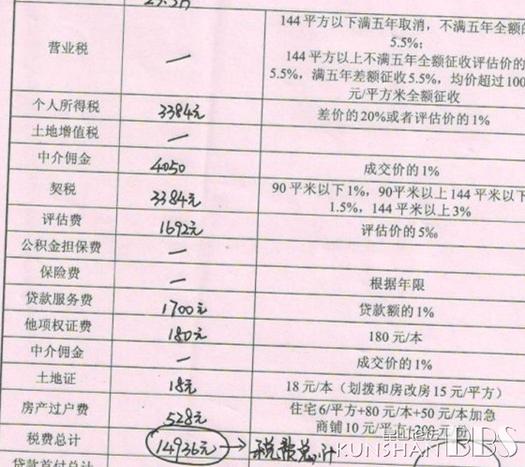 144平方以下满五年取消，不满五年全额的
5.5%；
营业税 — 144平方以上不满五年全额征收评估价的
5.5%，满五年差额征收5.5%，均价超过100
元/平方米全额征收
个人所得税 3384元 差价的20%或者评估价的1%
土地增值税 —
中介佣金 4050 成交价的1%
契税 3384元 90平米以下1%，90平米以上144平米以下
1.5%，144平米以上3%
评估费 1692元 评估价的5%
公积金担保费 —
保险费 — 根据年限
贷款服务费 1700元 贷款额的1%
他项权证费 180元 180元/本
中介佣金 — 成交价的1%
土地证 18元 18元/本（划拨和房改房15元/平方）
房产过户费 528元 住宅6/平方+80元/本+50元/本加急
商铺10元/平方+200元
税费总计 14936元→税费总计
KUNSHAN BBS
贷款首付总计